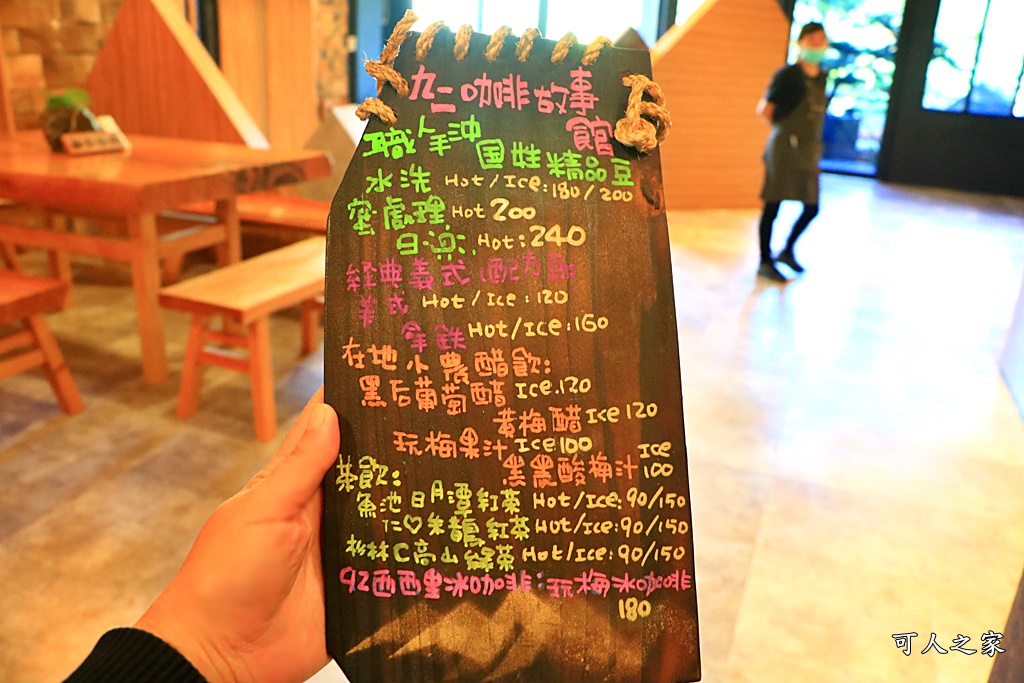 九二咖啡故事
館
職人手沖
国姓精品豆
水洗 Hot/Ice:180/200
蜜處理 Hot 200
日曬: Hot:240
経典義式(配方豆)
義式 Hot/Ice:120
拿鉄 Hot/Ice:160
在地小農醋飲:
黑后葡萄醋 Ice.120
黄梅醋 Ice 120
玩梅果汁 Ice 100
黑農酸梅汁 Ice 100
茶飲:
魚池日月潭紅茶 Hot/Ice:90/150
仁♡朱鸝紅茶 Hot/Ice:90/150
杉林C高山綠茶 Hot/Ice:90/150
92西西里冰咖啡:玩梅冰咖啡
180
可人之家